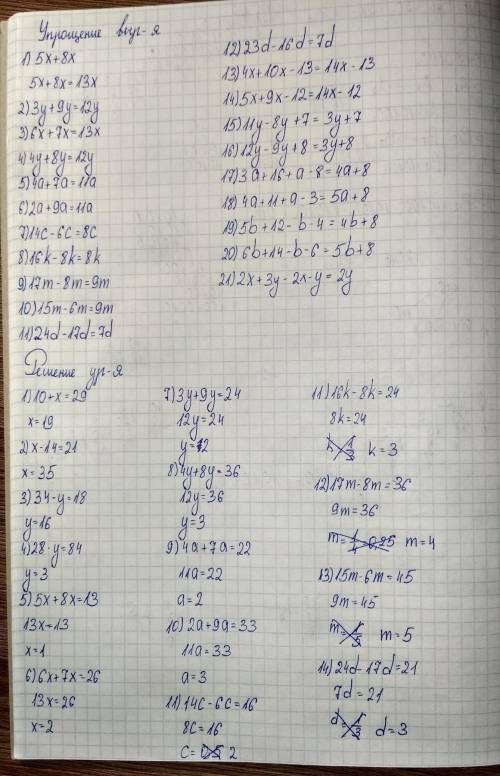 Упрощение выр-я
1) 5x+8x
5x+8x=13x
2) 3y+9y=12y
3) 6x+7x=13x
4) 4y+8y=12y
5) 4a+7a=11a
6) 2a+9a=11a
7) 14c-6c=8c
8) 16k-8k=8k
9) 17m-8m=9m
10) 15m-6m=9m
11) 24d-17d=7d
12) 23d-16d=7d
13) 4x+10x-13=14x-13
14) 5x+9x-12=14x-12
15) 11y-8y+7=3y+7
16) 12y-9y+8=3y+8
17) 3a+16+a-8=4a+8
18) 4a+11+a-3=5a+8
19) 5b+12-b-4=4b+8
20) 6b+14-b-6=5b+8
21) 2x+3y-2x-y=2y
Решение ур-я
1) 10+x=29
x=19
2) x-14=21
x=35
3) 34-y=18
y=16
4) 28·y=84
y=3
5) 5x+8x=13
13x=13
x=1
6) 6x+7x=26
13x=26
x=2
7) 3y+9y=24
12y=24
y=2
8) 4y+8y=36
12y=36
y=3
9) 4a+7a=22
11a=22
a=2
10) 2a+9a=33
11a=33
a=3
11) 14c-6c=16
8c=16
c=2
11) 16k-8k=24
8k=24
k=3
12) 17m-8m=36
9m=36
m=4
13) 15m-6m=45
9m=45
m=5
14) 24d-17d=21
7d=21
d=3